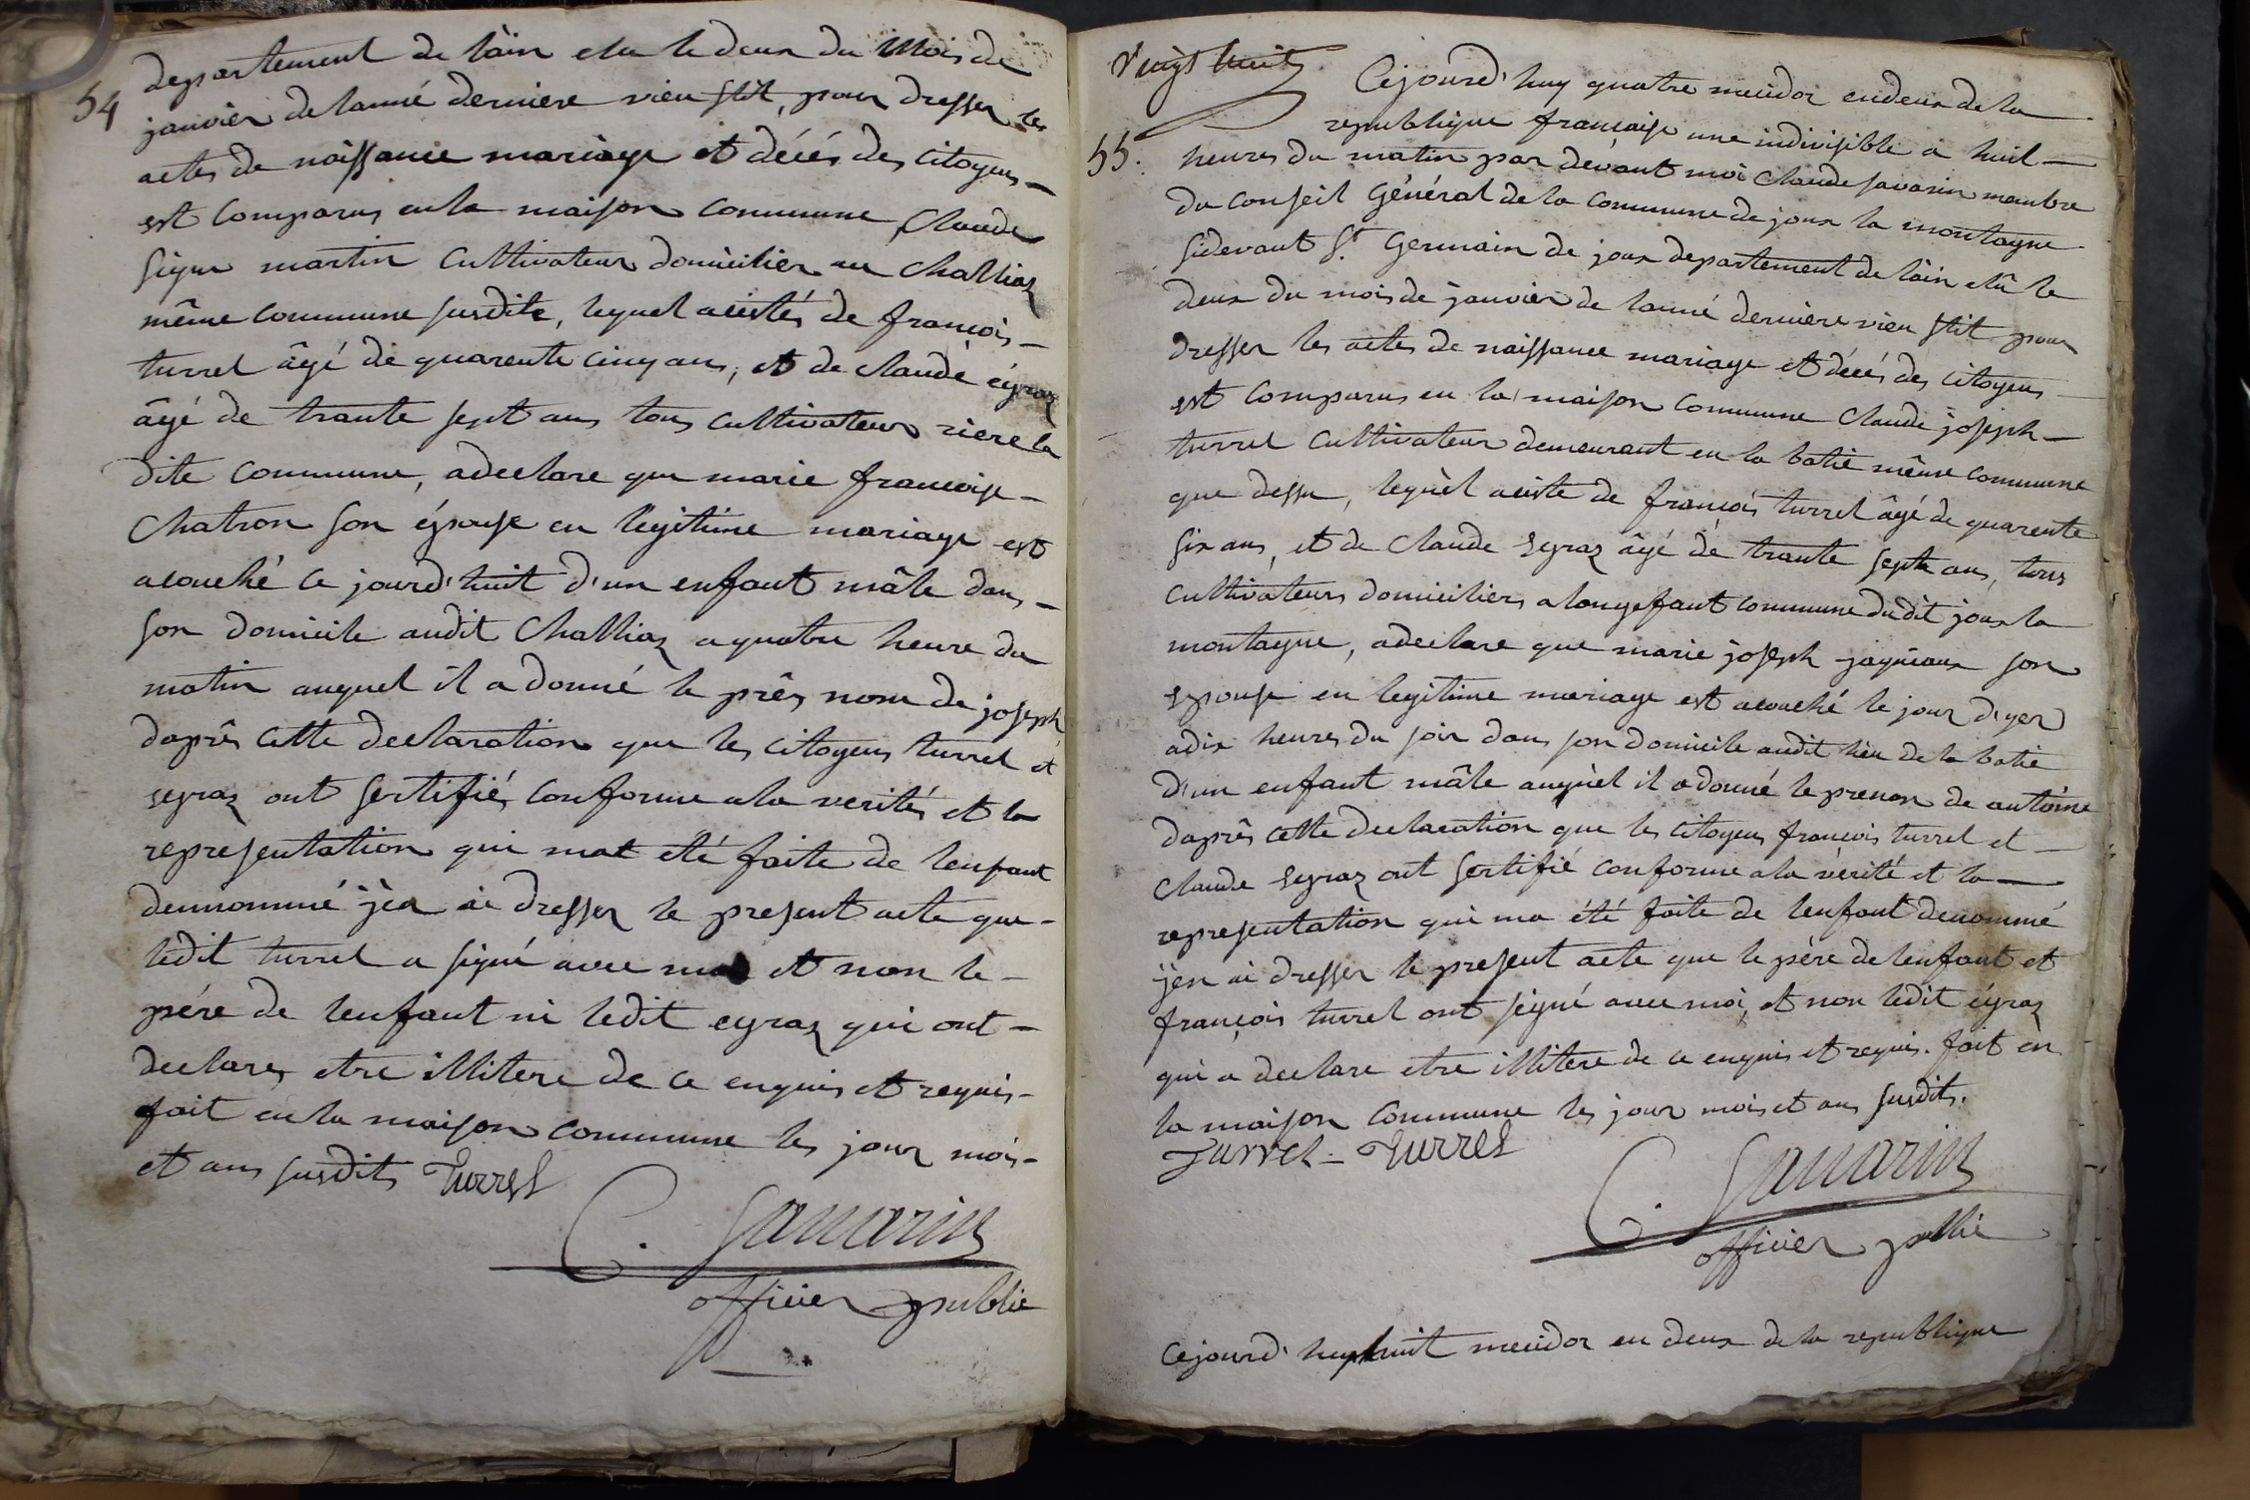 departement de làin elu le deux du Mois de
54
janvier de lanné derniere vieu stil, pour dresser les
actes de naissance mariage et décés des citoyens
est comparus en la maison commune Claude
sigue martin cultivateur domicilier au Challiaz
même commune susdite, lequel acistés de françois
turrel âgé de quarente cinq ans, et de claude égraz
âgé de trante sept ans tous cultivateurs riere la
dite commune, a declare que marie francoise
Chatron son épouse en légitime mariage est
acouché ce jourd'huit d'un enfant mâle dans
son domicile audit Challiaz a quatre heure du
matin auquel il a donné le prês nom de joseph
daprês cette declaration que les citoyens turrel et
segraz ont sertifiés conforme a la verités et la
representation qui mat été faite de lenfant
dennommé jèn ai dresser le present acte que
ledit turrel a signé avec moi et non le
pére de lenfant ni ledit egraz qui ont
declares etre illitere de ce enquis et requis
fait en la maison commune les jour mois
et ans susdits Turrel
C. Savarin
officier public
vingt huit
Cejourd'huy quatre meisidor en deux de la
republique française une indivisible a huit
55.
heures du matin par devant moi Claude Savarin membre
du conseil Général de la commune de joux la montagne
sidevant St. Germain de joux departement de làin elû le
deux du mois de janvier de lanné derniere vieu stil pour
dresser les actes de naissance mariage et décés des citoyens
est comparus en la maison commune Claude joseph
turrel cultivateur demeurant en la batie même commune
que dessu, lequèl aciste de françois turrel âgé de quarente
six ans, et de Claude segraz âgé de trante septe ans, tous
cultivateurs domiciliers a longefant commune dudit joux la
montagne, a declare que marie joseph jaquioux son
epouse en legitime mariage est acouché le jour d'yer
a dix heures du soir dans son domicile audit lieu de la batie
d'un enfant mâle auquèl il a donné le prenon de antoine
daprês cette declaration que les citoyens francois turrel et
Claude segraz ont sertifié conforme a la vérité et la
representation qui ma été faite de lenfant denommé
jen ai dresser le present acte que le père de lenfant et
françois turrel ont signé avec moi, et non ledit égraz
qui a declare etre illitere de ce enquis et requis. fait èn
la maison commune les jour mois et ans susdits.
Turrel - Turrel
C. Savarin
officier public
Cejourd'huy huit meisidor en deux de la republique